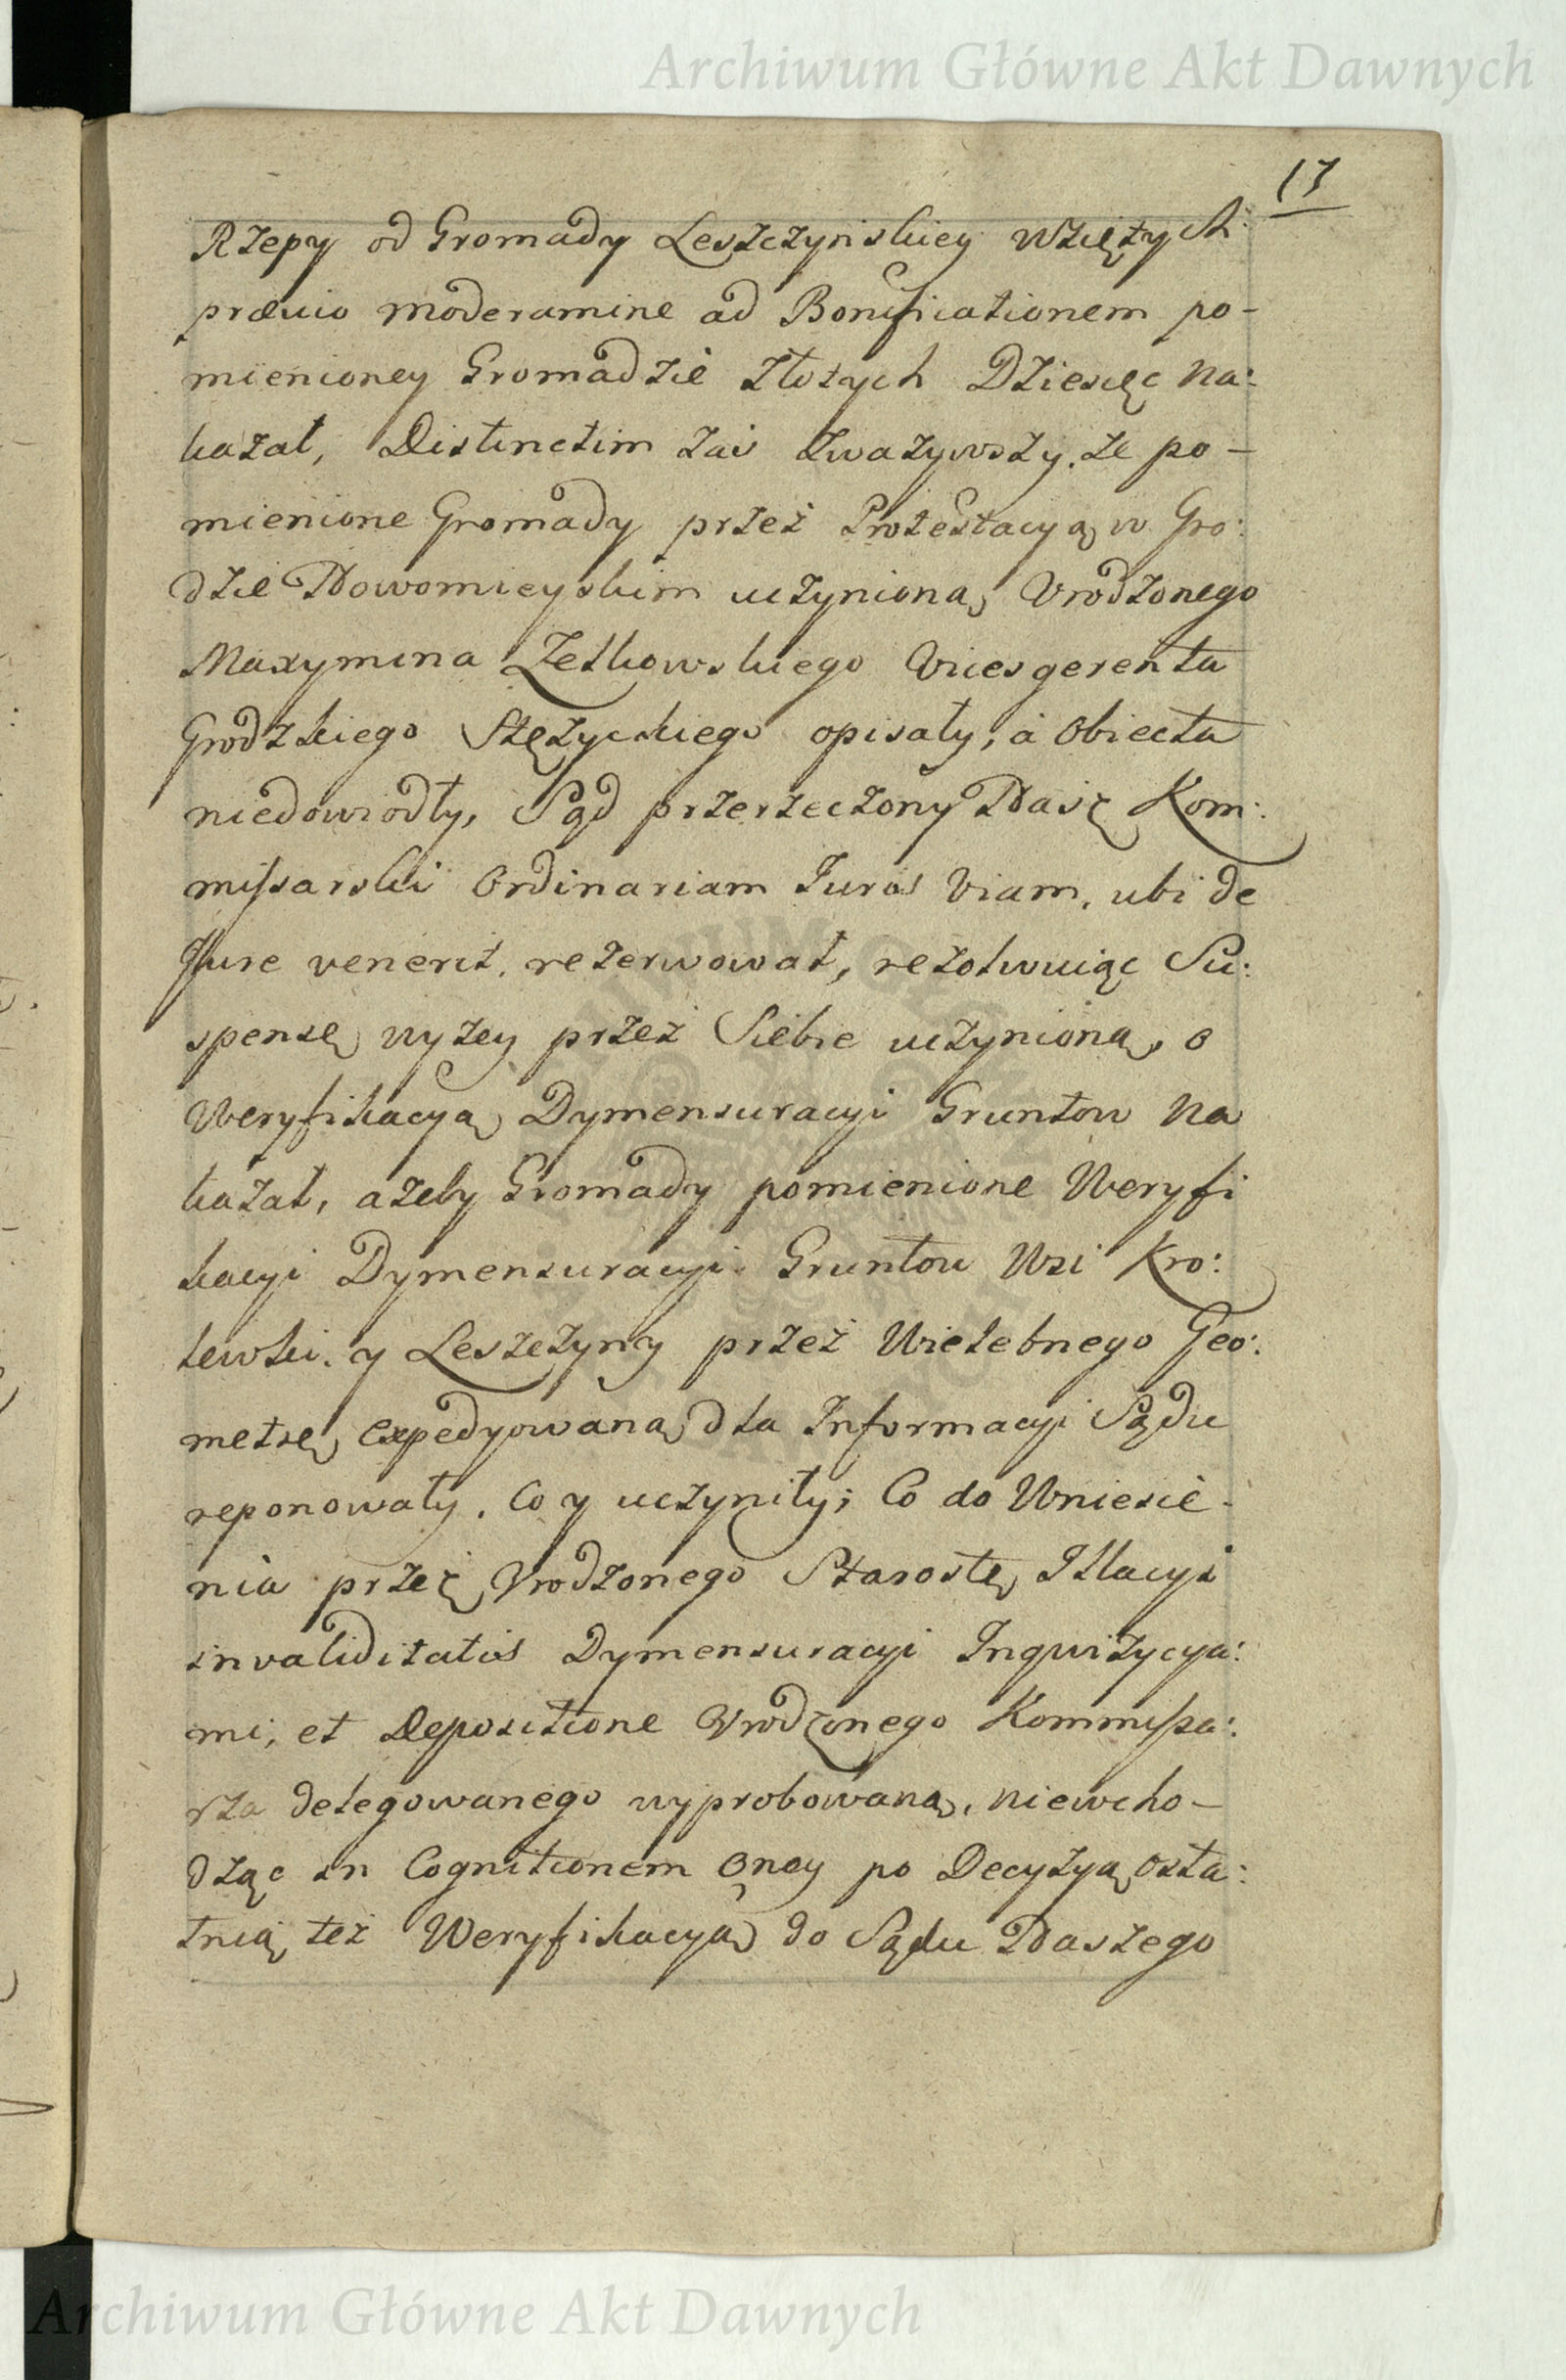 Archiwum Główne Akt Dawnych
17
Rzepy od Gromady Leszczyńskiey wziętych
prævio moderamine ad Bonificationem po-
mienioney Gromadzie Złotych Dziesięć na:
kazał, Distinctim zaś zważywszy, że po-
mienione Gromady przez Protestacyą w Gro:
dzie Nowomieyskim uczynioną Urodzonego
Maxymina Zetkowskiego Vicesgerenta
Grodzkiego Stężyckiego opisały, a Obiecta
niedowiodły, Sąd przerzeczony Nasz Kom:
missarski Ordinariam Juris Viam, ubi de
Jure venerit, rezerwował, rezolwuiąc Su:
spensę wyżey przez Siebie uczynioną, o
Weryfikacyą Dymensuracyi Gruntow na
kazał, ażeby Gromady pomienione Weryfi
kacyi Dymensuracyi Gruntow Wsi Kro:
lewski y Leszczyny przez Wielebnego Geo:
metrę expedyowaną dla Informacyi Sądu
reponowały. Co y uczyniły; Co do Wniesie-
nia przez Urodzonego Starostę Illacyi
invaliditatis Dymensuracyi Inqwizycya:
mi, et Depositione Urodzonego Kommissa:
rza delegowanego wyprobowaną, niewcho-
dząc in Cognitionem Oney po Decyzyą osta:
tnią też Weryfikacyą do Sądu Naszego
Archiwum Główne Akt Dawnych